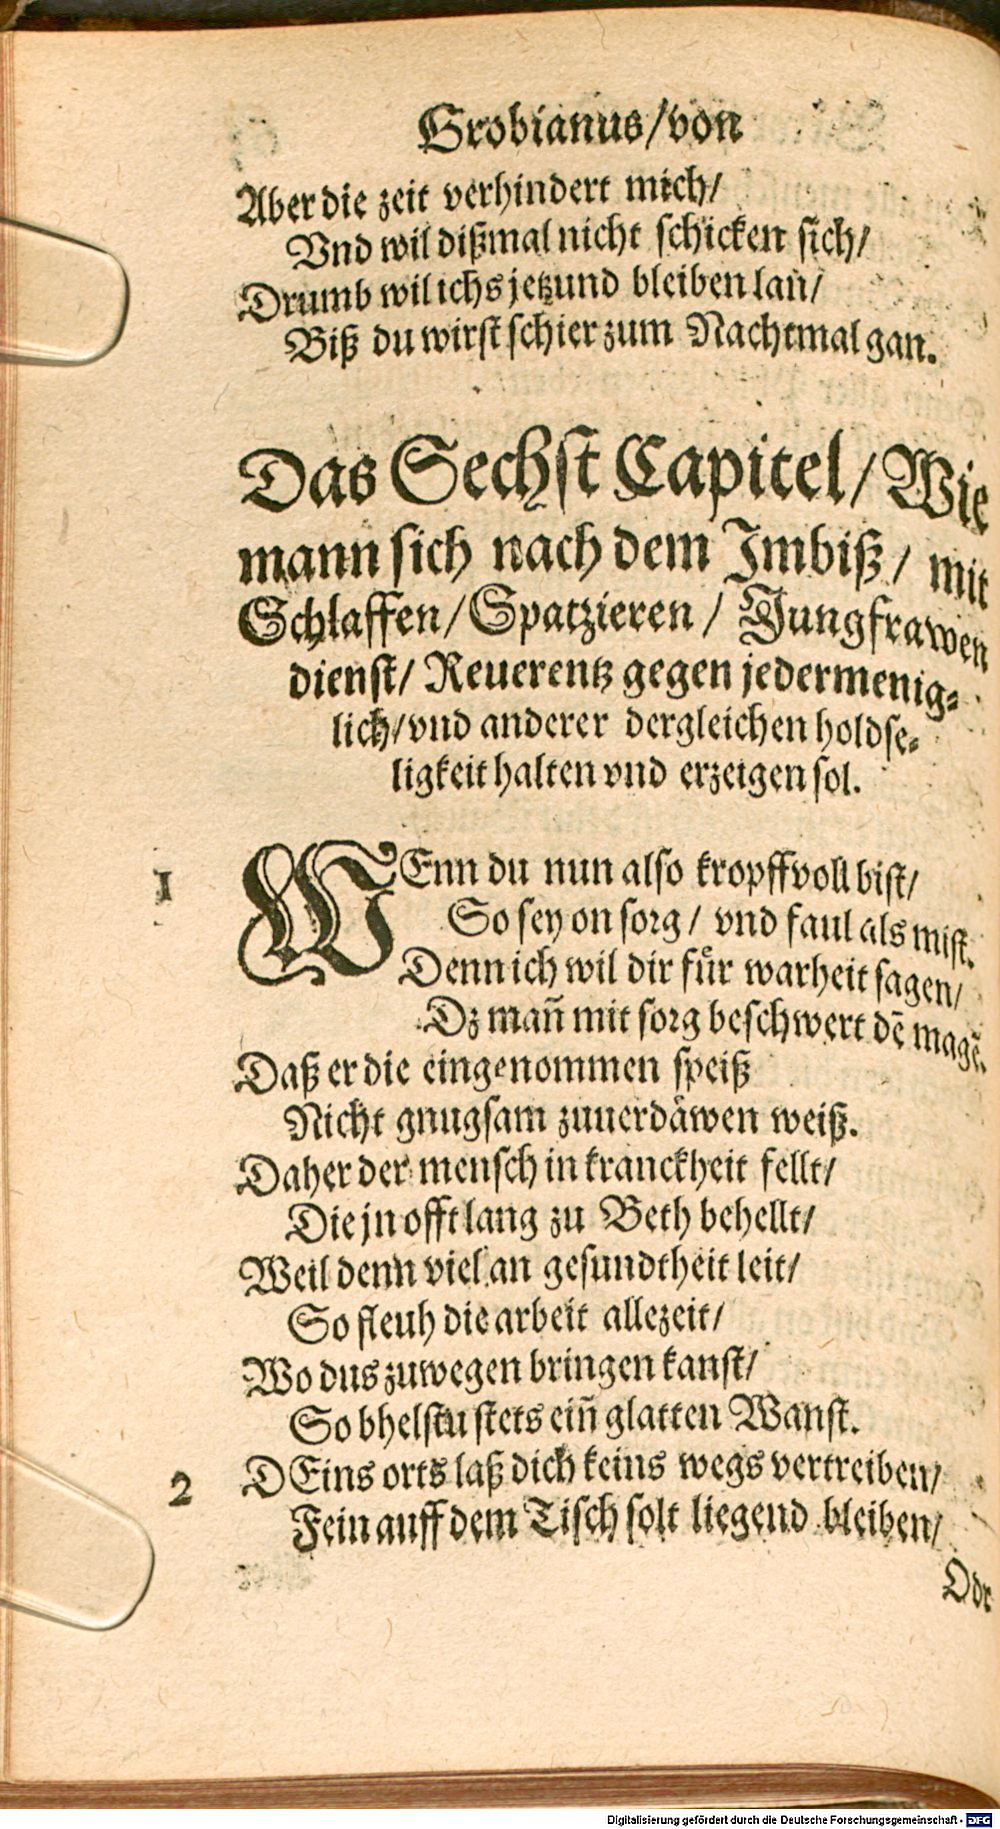 Grobianus/von
Aber die zeit verhindert mich/
Vnd wil dißmal nicht schicken sich/
Drumb wil ichs jetzund bleiben lan/
Biß du wirst schier zum Nachtmal gan.
Das Sechst Capitel/ Wie
mann sich nach dem Imbiß/ mit
Schlaffen/ Spatzieren/ Jungfrawen
dienst/ Reuerentz gegen jedermenig-
lich/ vnd anderer dergleichen holdse-
ligkeit halten vnd erzeigen sol.
1 WEnn du nun also kropffvoll bist/
So sey on sorg/ vnd faul als mist.
Denn ich wil dir für warheit sagen/
Dz mañ mit sorg beschwert dē magē.
Daß er die eingenommen speiß
Nicht gnugsam zuuerdäwen weiß.
Daher der mensch in kranckheit fellt/
Die jn offt lang zu Beth behellt/
Weil denn viel an gesundtheit leit/
So fleuh die arbeit allezeit/
Wo dus zuwegen bringen kanst/
So bhelstu stets eiñ glatten Wanst.
2 DEins orts laß dich keins wegs vertreiben/
Fein auff dem Tisch solt liegend bleiben/
Odr
Digitalisierung gefördert durch die Deutsche Forschungsgemeinschaft - DFG